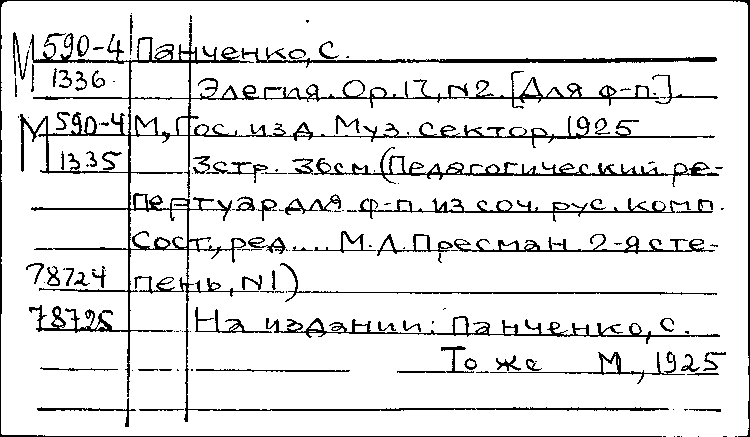 М 590-4 Панченко, С.
1336. Элегия. Ор.17, N2. [Для ф-п.].
М 590-4 М, Гос. изд. Муз. сектор, 1925
1335 3стр. 36см (Педагогический ре-
пертуар для ф-п. из соч. рус. комп.
Сост., ред.... М.Л. Пресман 2-я сте-
78724 пень, N1)
78725 На издании: Панченко, С.
То же М., 1925